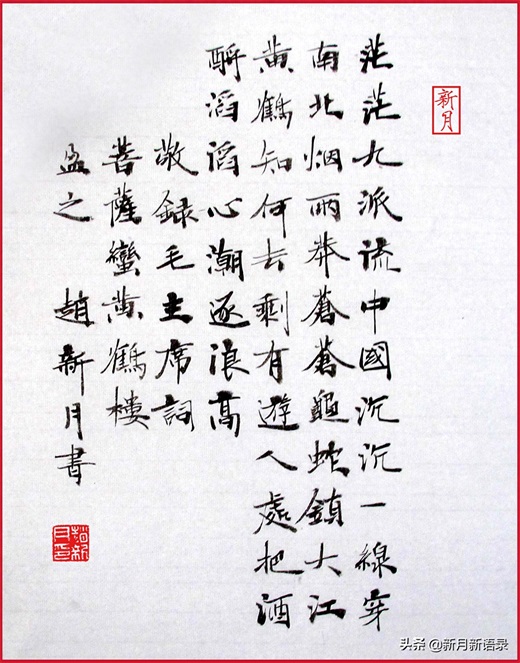 新月
茫茫九派流中國沉沉一線穿
南北烟雨莽蒼蒼龜蛇鎖大江
黄鶴知何去剩有遊人處把酒
酹滔滔心潮逐浪高
敬録毛主席詞
菩薩蠻黄鶴樓
盈之 趙新月書
趙新月印
头条 @新月新语录